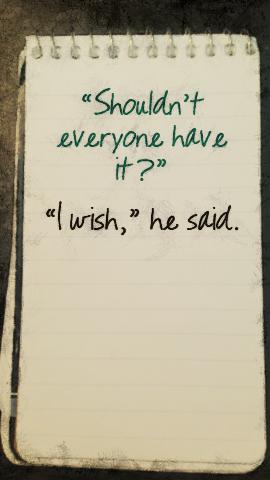 “Shouldn't
everyone have
it?”
“I wish,” he said.